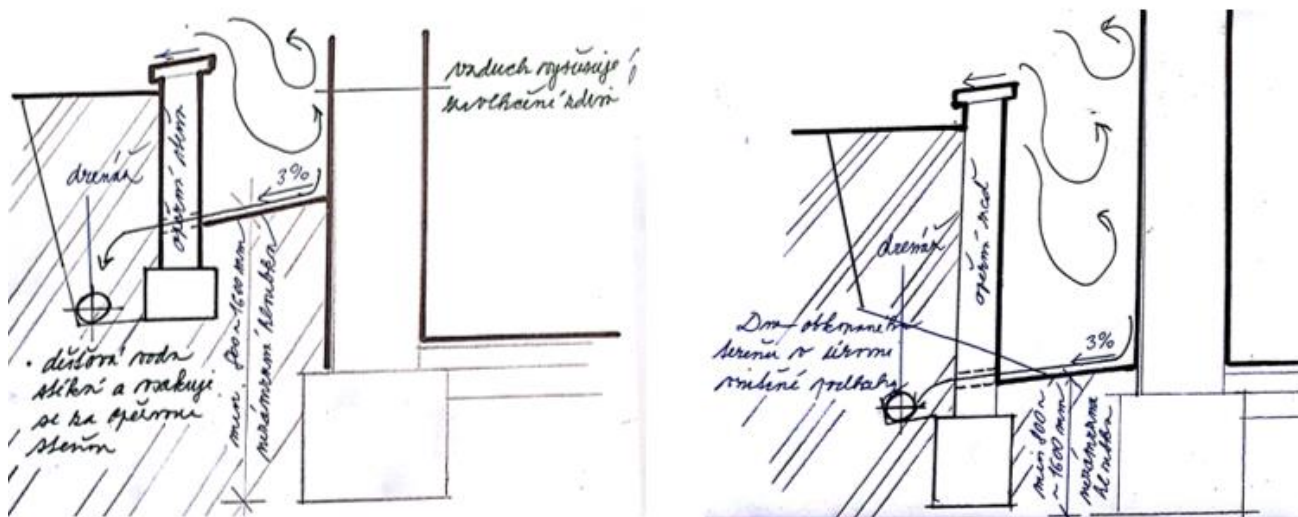 vzduch vysušuje
zavlhčené zdivo
3%
drenáž
opěrná stěna
min. 800 ~ 1600 mm
nezámrzná hloubka
• dešťová voda
stéká a vsakuje
se za opěrnou
stěnou
drenáž
opěrná zeď
Dno obkopaného
terénu v úrovni
vnitřní podlahy
3%
min 800 ~
~ 1600 mm
nezámrzná
hloubka